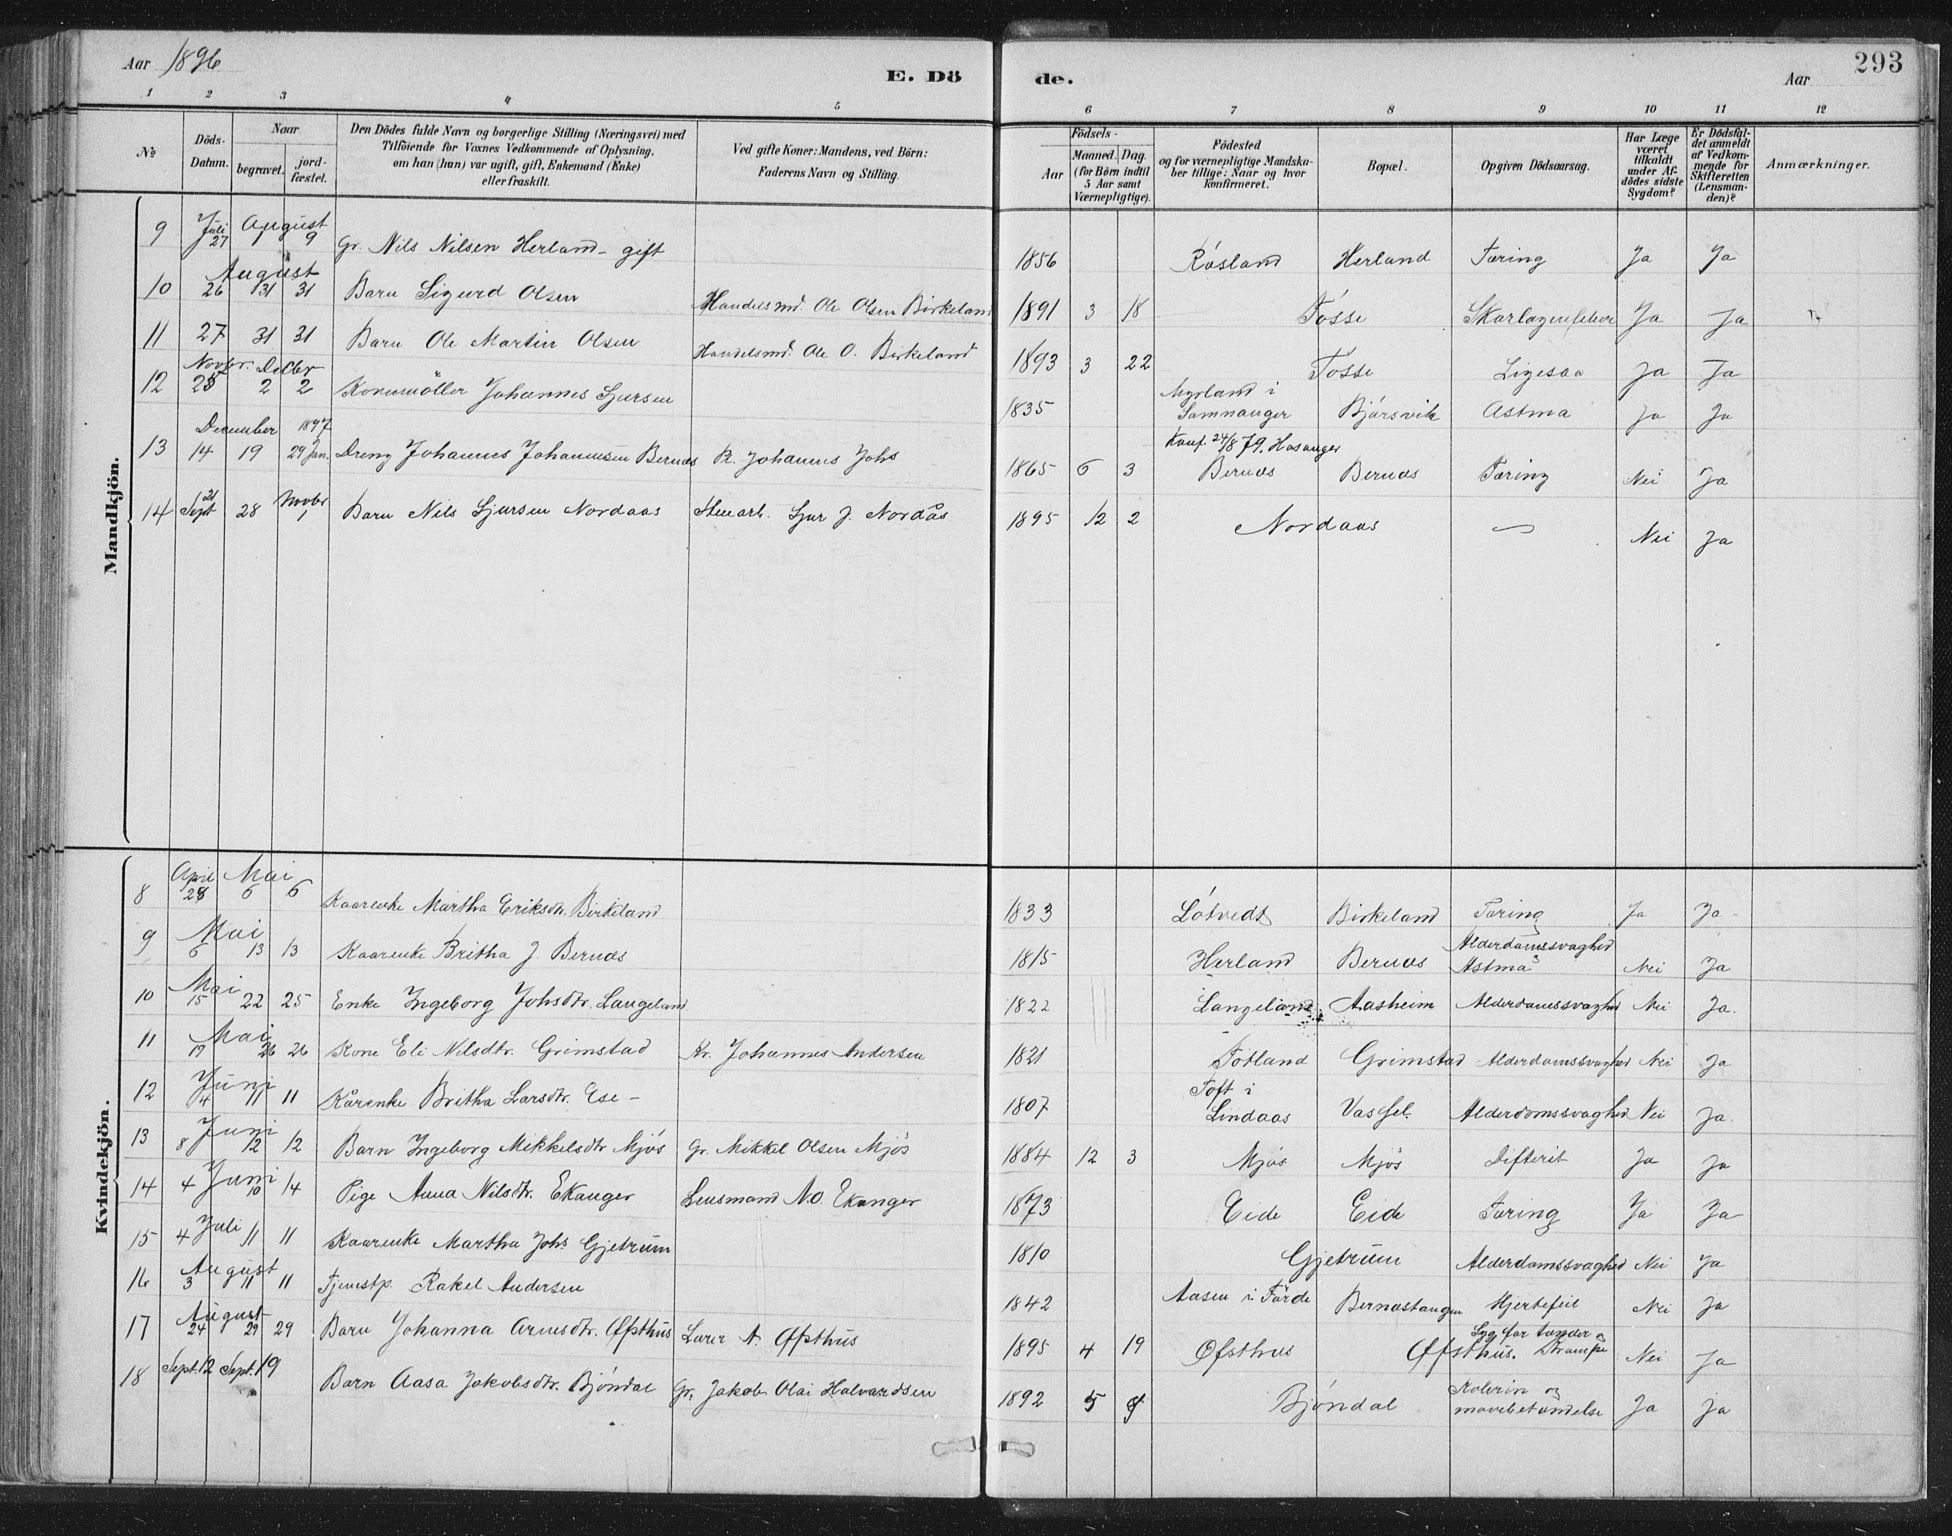 Aar 1896
E. Dö de.
Aar
293
1 2 3 4 5 6 7 8 9 10 11 12
№
Döds-Datum.
Naar
begravet.
jord-fæstet.
Den Dödes fulde Navn og borgerlige Stilling (Næringsvei) med
Tilföiende for Voxnes Vedkommende af Oplysning,
om han (hun) var ugift, gift, Enkemand (Enke)
eller fraskilt.
Ved gifte Koner: Mandens, ved Börn:
Faderens Navn og Stilling.
Födsels-
Aar
Maaned. Dag.
(for Börn indtil
5 Aar samt
Værnepligtige).
Födested
og for værnepligtige Mandska-
ber tillige: Naar og hvor
konfirmeret.
Bopæl.
Opgiven Dödsaarsag.
Har Læge
været
tilkaldt
under Af-
dödes sidste
Sygdom?
Er Dödsfal-
det anmeldt
af Vedkom-
mende for
Skifteretten
(Lensman-
den)?
Anmærkninger.
Mandkjön.
9 Juli 27 August 9 Gr. Nils Nilsen Herland - gift 1856 Røsland Herland Tæring Ja Ja
10 August 26 31 31 Barn Sigurd Olsen Handelsmd. Ole Olsen Birkeland 1891 3 18 Fosse Skarlagensfeber Ja Ja
11 27 31 31 Barn Ole Martin Olsen Handelsmd. Ole O. Birkeland 1893 3 22 Fosse Ligesaa Ja Ja
12 Novbr. 25 Decbr 2 2 Konemöller Johannes Sjursen 1835 Myrland i Samnanger Bjørsvik Astma Ja Ja
13 December 14 19 1897 29 Jan. Dreng Johannes Johannesen Bernæs Johannes Johs 1865 6 3 Konf. 24/8 79. Hosanger Bernæs Bernæs Tæring Nei Ja
14 21 Sept 28 Novbr 1 Barn Nils Sjursen Nordaas Stenarb. Sjur J. Nordås 1895 12 2 Nordaas — Nei Ja
Kvindekjön.
8 April 28 Mai 6 6 Kaarenke Martha Eriksdtr. Birkeland 1833 Løtvedt Birkeland Tæring Ja Ja
9 Mai 6 13 13 Kaarenke Britha J. Bernæs 1815 Herland Bernæs Alderdomssvaghed Astma Nei Ja
10 Mai 15 22 25 Enke Ingeborg Johsdtr. Langeland 1822 Langeland Aasheim Alderdomssvaghed Nei Ja.
11 Mai 19 26 26 Kone Eli Nilsdtr. Grimstad Kr. Johannes Andersen 1821 Totland Grimstad Alderdomssvaghed Nei Ja
12 Juni 4 11 11 Kårenke Britha Larsdtr. Ese - 1807 Toft i Lindaas Vassel. Alderdomssvaghed Nei Ja.
13 Juni 8 12 12 Barn Ingeborg Mikkelsdtr Mjøs Gr. Mikkel Olsen Mjøs 1884 12 3 Mjøs Mjøs Difterit Ja Ja
14 4 Juni 10 14 Pige Anna Nilsdtr. Ekanger Lensmand N.O. Ekanger 1873 Eide Eide Tæring Ja Ja
15 4 Juli 11 11 Kaarenke Martha Johs Gjetrum 1810 Gjetrum Alderdomssvaghed Nei Ja
16 August 3 11 11 Tjenestp. Rakel Andersen 1842 Aasen i Førde Bernæstangen Hjertefeil Nei Ja
17 August 24 29 29 Barn Johanna Arnesdtr. Øfsthus Lærer A. Øfsthus 1895 4 19 Øfsthus Øfsthus. Syg for tænder o Krampe Nei Ja
18 Sept. 12 Sept. 19 Barn Aasa Jakobsdtr. Bjøndal Gr. Jakob Olai Halvardsen 1892 5 9 Bjøndal Kolerin og mavebetændelse Ja Ja